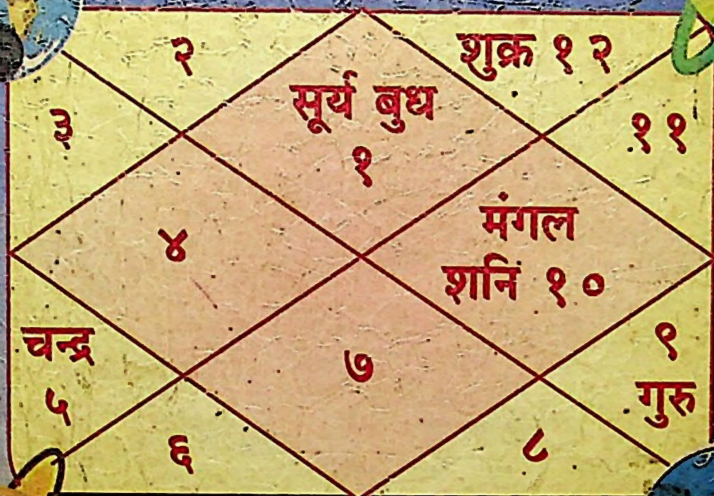 २
शुक्र १२
सूर्य बुध
१
३
११
४
मंगल
शनि १०
चन्द्र
५
७
९
गुरु
६
८